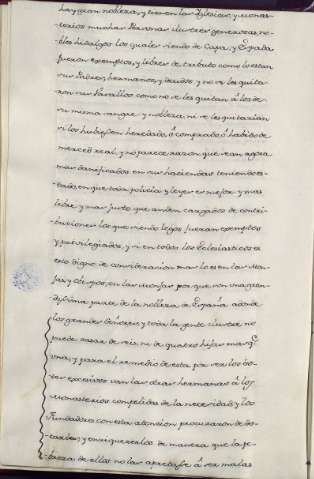 hayajam nobleza, y tienen las Yglesias, y monas-
terios muchas Personas ilustres generosas no-
bles hidalgos los quales siendo de Capa, y Espada
fueron exemptos, y libres de tributo como lo estan
sus Padres, hermanos, y deudos y no se les quita-
ron sus Vasallos como no se les quitan á los de
su misma sangre y nobleza ni se les quitarian
si los hubiessen heredado ó comprado ó habido de
merced real, y no parece razon que sean aora
mas danificados en sus haciendas teniendo es-
tado en que toda policia y leyes es mejor y mas
libre y mas justo que anden cargados de contri-
buciones los que siendo legos fueran exemptos
y privilegiados, y si en todos los Eclesiasticos es
esto digno de consideracion mas lo es en las Mon-
jas y en las monjas por que son una gran-
disima parte de la nobleza de España adonde
los grandes Señores y toda la gente ilustre no
puede casar de seis ni de quatro hijas mas q̃
una, y para el remedio de esta por ser los do-
tes excesivos van las demas hermanas á los
monasterios compelidas de la necesidad y los
Fundadores con esta atension procuraron do-
tarles y enriquecerlos de manera que la po-
breza de ellos no las apretasse á ser malas